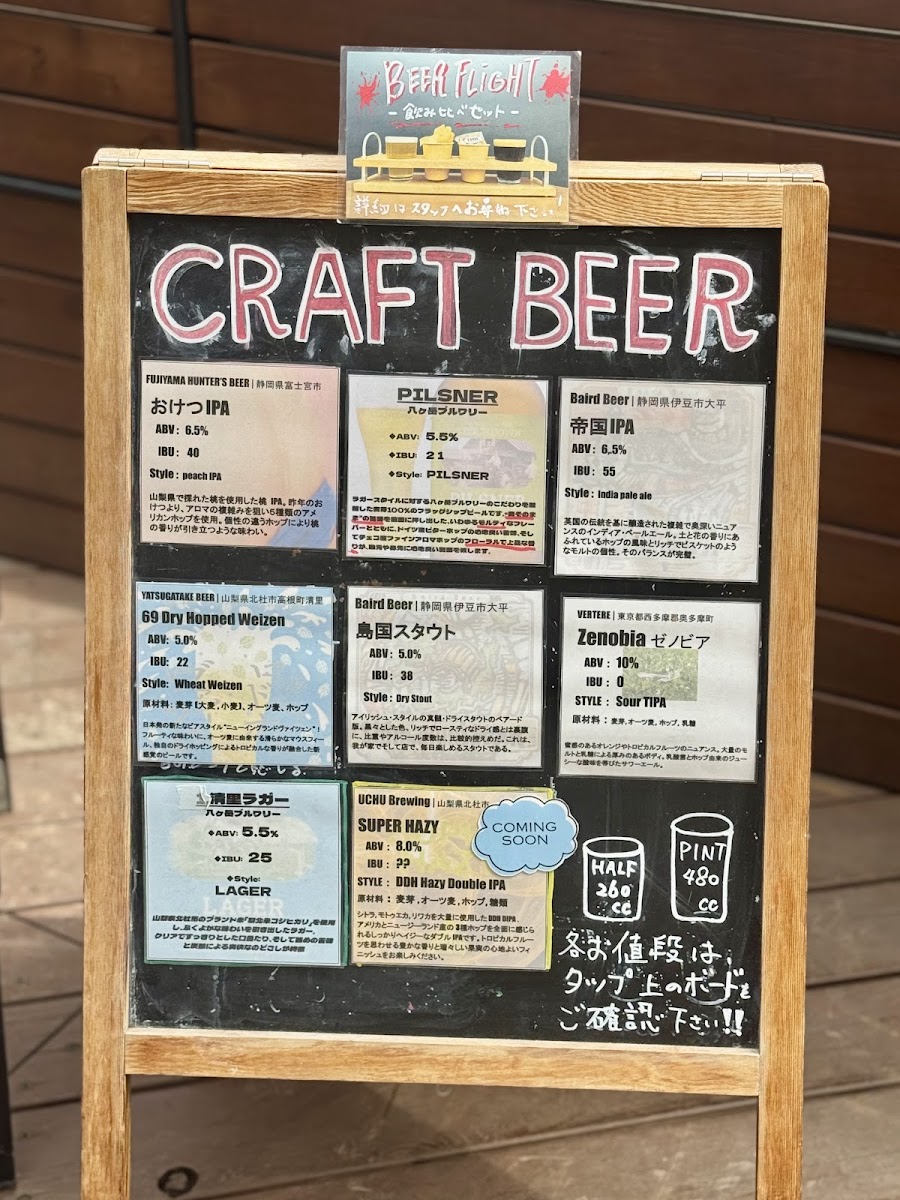 BEER FLIGHT
- 飲み比べセット -
詳細はスタッフへお尋ね下さい!
CRAFT BEER
FUJIYAMA HUNTER'S BEER | 静岡県富士宮市
おけつIPA
ABV: 6.5%
IBU: 40
Style: peach IPA
山梨県で採れた桃を使用した桃 IPA。昨年のお
けつより、アロマの複雑みを狙い5種類のアメ
リカンホップを使用。個性の違うホップにより桃
の香りが引き立つような味わい。
PILSNER
八ヶ岳ブルワリー
❖ABV: 5.5%
❖IBU: 21
❖Style: PILSNER
ラガースタイルに対する八ヶ岳ブルワリーのこだわりを凝
Baird Beer | 静岡県伊豆市大平
帝国IPA
ABV: 6,.5%
IBU: 55
Style: india pale ale
英国の伝統を基に醸造された複雑で奥深いニュア
ンスのインディア・ペールエール。土と花の香りにあ
ふれているホップの風味とリッチでビスケットのよう
なモルトの個性。そのバランスが完璧。
YATSUGATAKE BEER | 山梨県北杜市高根町清里
69 Dry Hopped Weizen
ABV: 5.0%
IBU: 22
Style: Wheat Weizen
原材料: 麦芽(大麦,小麦)、オーツ麦、ホップ
日本発の新たなビアスタイル"ニューイングランドヴァイツェン"!
フルーティな味わいに、オーツ麦に由来する滑らかなマウスフィー
ル。独自のドライホッピングによるトロピカルな香りが融合した新
感覚のビールです。
Baird Beer | 静岡県伊豆市大平
島国スタウト
ABV: 5.0%
IBU: 38
Style: Dry Stout
アイリッシュ・スタイルの真髄・ドライスタウトのベアード
版。黒々とした色、リッチでロースティなドライ感とは裏腹
に、比重やアルコール度数は、比較的控えめだ。これは、
我が家でそして店で、毎日楽しめるスタウトである。
VERTERE | 東京都西多摩郡奥多摩町
Zenobia ゼノビア
ABV: 10%
IBU: 0
STYLE: Sour TIPA
原材料: 麦芽,オーツ麦,ホップ,乳糖
蜜感のあるオレンジやトロピカルフルーツのニュアンス。大量のモ
ルトと乳糖による厚みのあるボディ。乳酸菌とホップ由来のジュー
シーな酸味を帯びたサワーエール。
清里ラガー
八ヶ岳ブルワリー
❖ABV: 5.5%
❖IBU: 25
❖Style:
LAGER
LAGER
UCHU Brewing | 山梨県北杜市
SUPER HAZY
ABV: 8.0%
IBU: ??
STYLE: DDH Hazy Double IPA
原材料: 麦芽,オーツ麦,ホップ,糖類
シトラ,モトゥエカ,リワカを大量に使用した DDH DIPA
アメリカとニュージーランド産の 3種ホップを全面に感じら
れるしっかりヘイジーなダブル IPAです。トロピカルフルー
ツを思わせる豊かな香りと瑞々しい果実の心地よいフィ
ニッシュをお楽しみください。
COMING
SOON
HALF
260
cc
PINT
480
cc
各お値段は、
タップ上のボードを
ご確認下さい!!